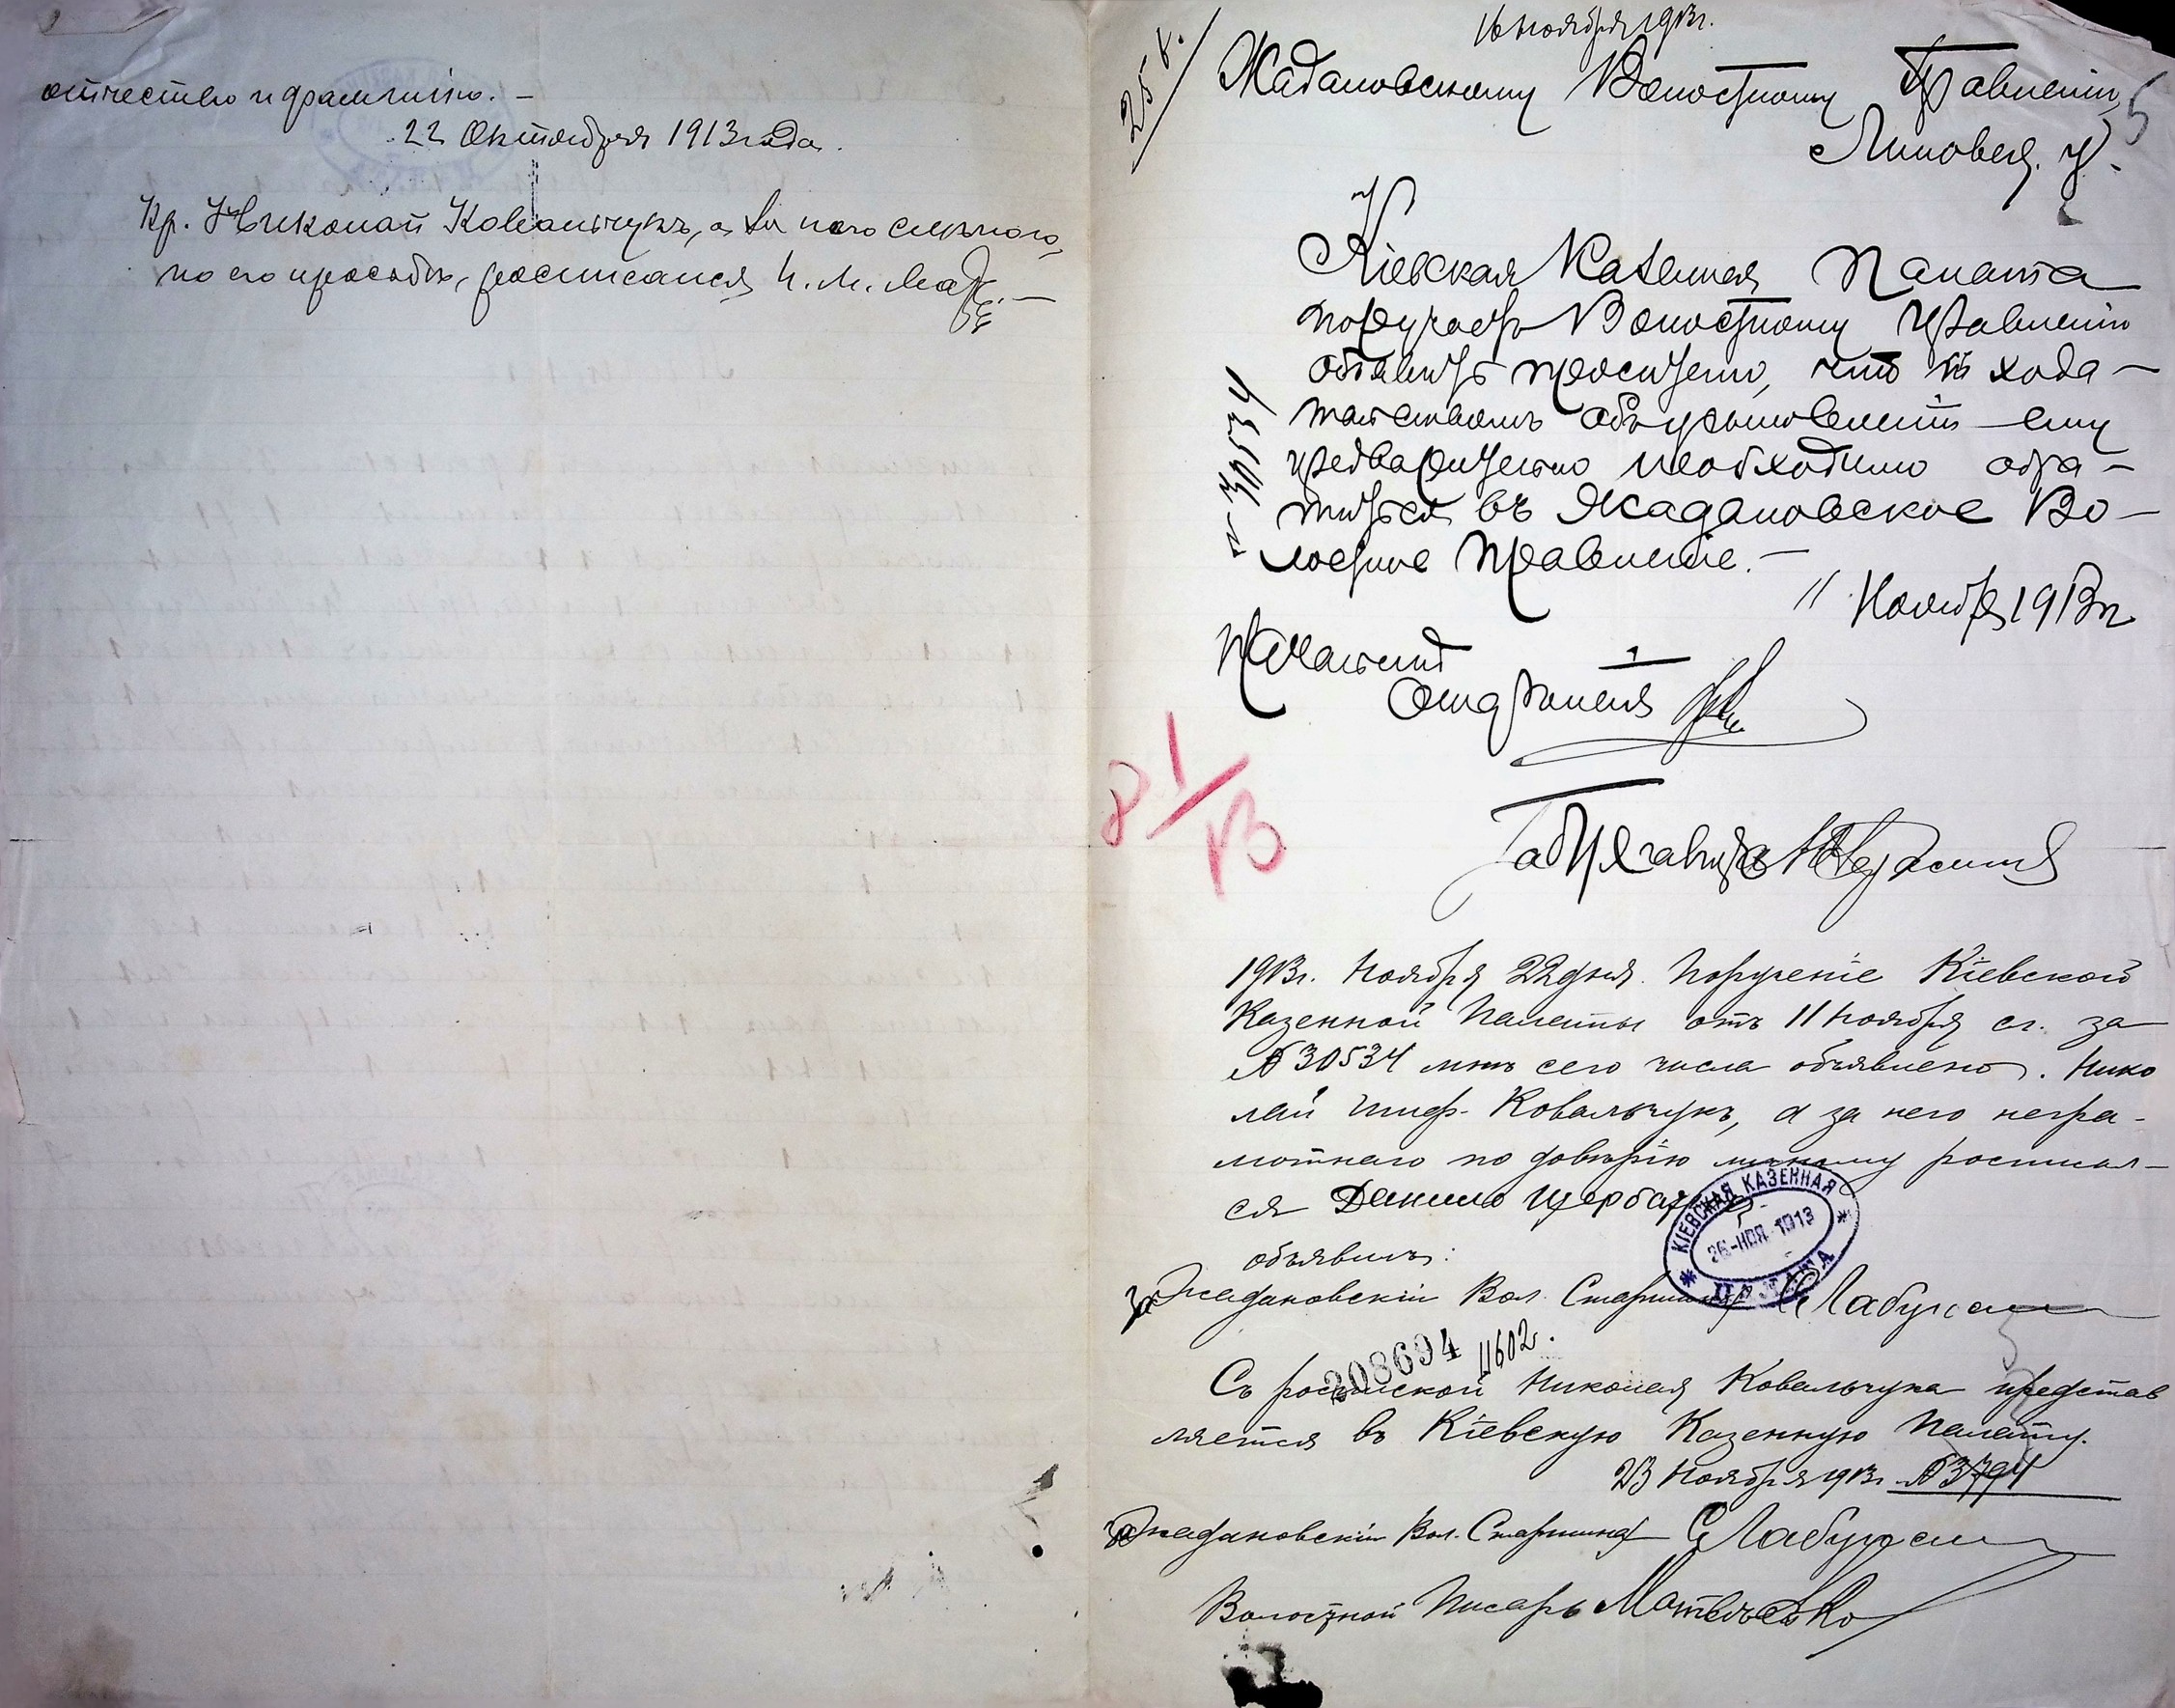 отчество и фамилію. –
22 Октября 1913 года.
Кр. Николай Ковальчукъ, а за него
по его просьбѣ, росписался И. М.
16 ноября 1913 г.
25 к.
5
Жадановскому Волостному Правленію
Липовец. у.
Кіевская Казенная Палата
поручаетъ Волостному Правленію
объявить просителю, что съ хода-
тайствомъ объ усыновленіи ему
предварительно необходимо обра-
титься въ Жадановское Во-
лостное Правленіе. –
11 Ноября 1913 г.
№ 30534
Начальникъ
Отдѣленія
1913 г. Ноября 22 дня. Порученіе Кіевской
Казенной Палаты отъ 11 Ноября сг. за
№ 30534 мнѣ сего числа объявлено. Нико
лай Ковальчукъ, а за него негра-
мотнаго по довѣрію личному росписал-
ся Данило
объявилъ:
За Жадановскій Вол. Старшина
КІЕВСКАЯ КАЗЕННАЯ ПАЛАТА
26 НОЯ 1913
208694 11602.
Съ росписской Николая Ковальчука представ
ляется въ Кіевскую Казенную Палату.
23 Ноября 1913 г. № 3794
За Жадановскій Вол. Старшина
Волостной Писарь